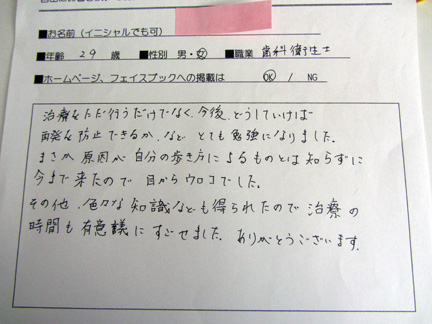 ■お名前（イニシャルでも可）
■年齢 29 歳 ■性別 男・女 ■職業 歯科衛生士
■ホームページ、フェイスブックへの掲載は OK / NG
治療をただ行うだけでなく、今後、どうしていけば
再発を防止できるか、など とても勉強になりました。
まさか原因が自分の歩き方によるものとは知らずに
今まで来たので目からウロコでした。
その他、色々な知識なども得られたので治療の
時間も有意議にすごせました。ありがとうございます。